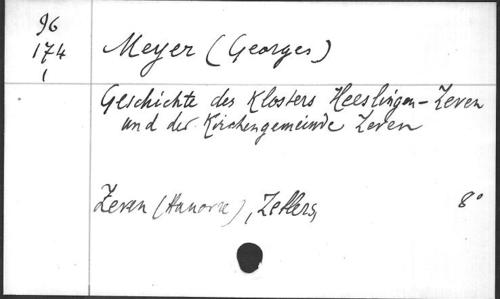 96
174
1
Meyer (Georges)
Geschichte des Klosters Heeslingen-Zeven
und der Kirchengemeinde Zeven
Zeven (Hanovre), Zetlers, 8°